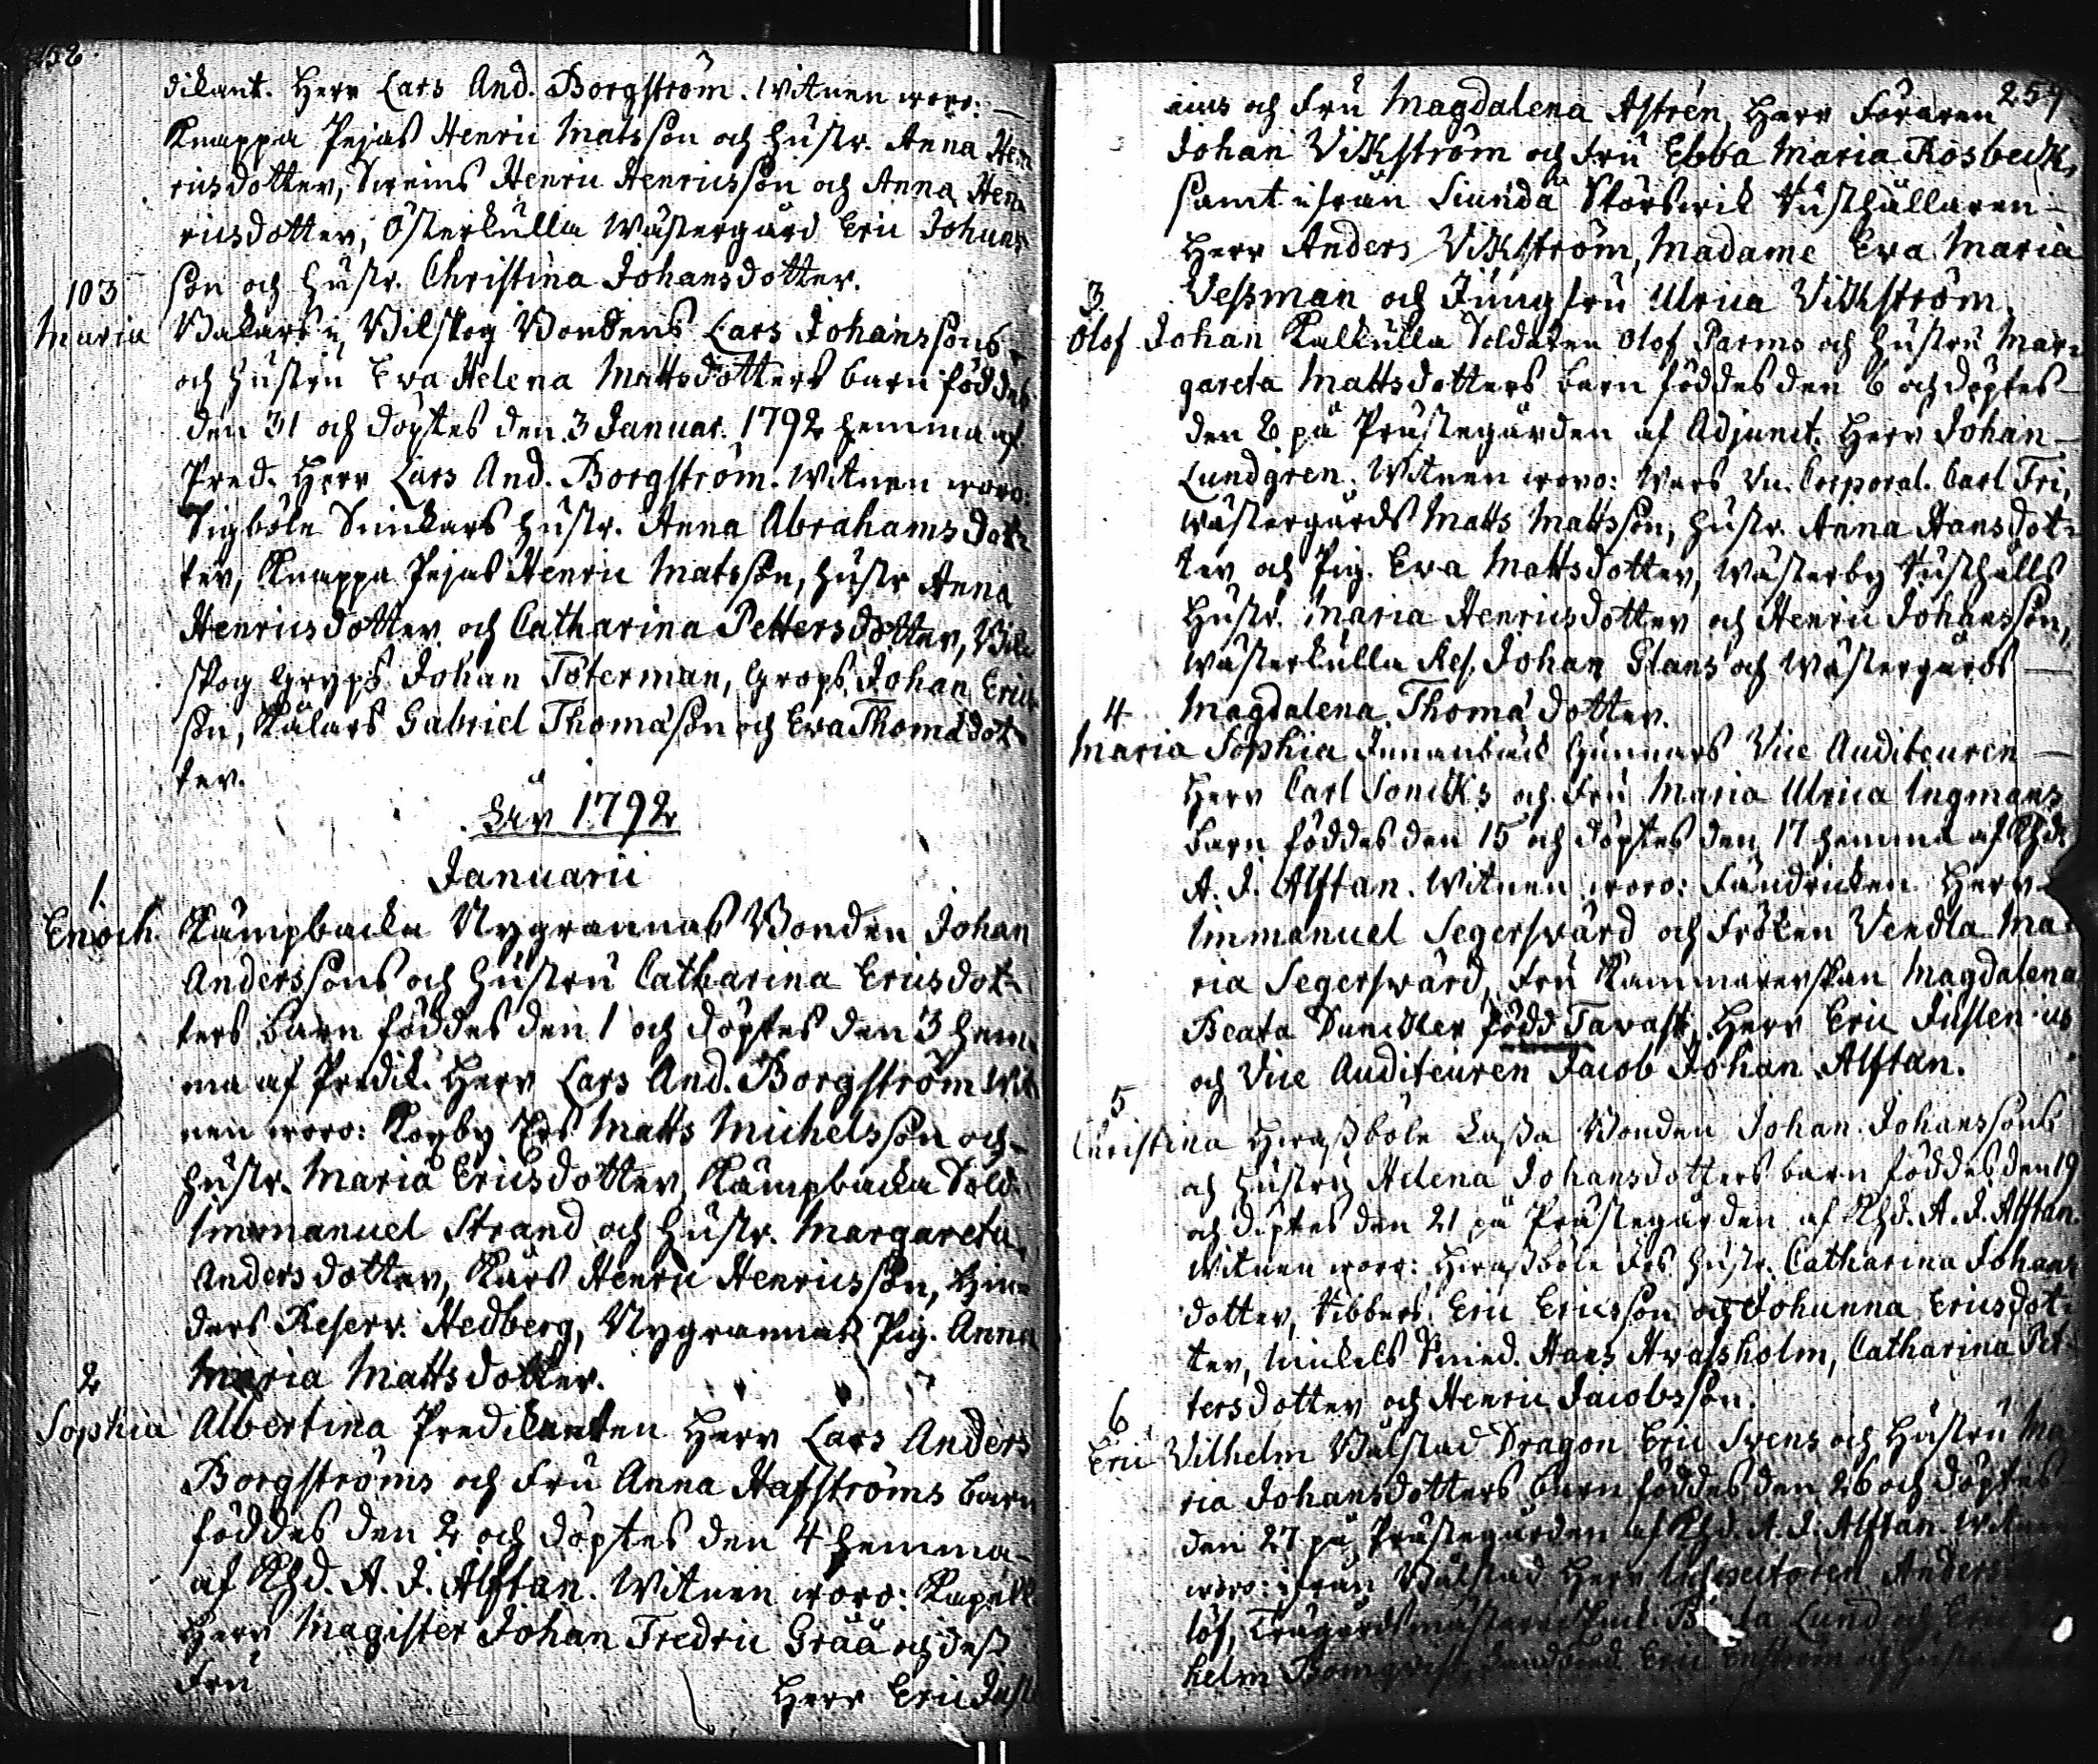 dikant. Herr Lars And. Borgström. Witnen woro:
Knappa Pejas Henric Matsson och hustr. Anna Hen
ricsdotter, Sveins Henric Henricsson och Anna Hen
ricsdotter, Österkulla Wästergård Eric Johans
son och hustr. Christina Johansdotter.
103
Maria Bakars i Bilskog Bondens Lars Johanssons
och hustru Eva Helena Mattsdotters barn föddes
den 31 och döptes den 3 Januar. 1792 hemma af
Pred. Herr Lars And. Borgström. Witnen woro:
Sigböle Snickars hustr. Anna Abrahamsdot
ter, Knappa Pejas Henric Matsson, hustr Anna
Henricsdotter och Catharina Pettersdotter, Bil
skog Gryps Johan Töterman, Grops Johan Eric
son, Kålars Gabriel Thomasson och Eva Thomädot
ter.
År 1792
Januarii
1.
Enoch. Kämpbacka Nygrannas Bonden Johan
Anderssons och hustru Catharina Ericsdot
ters barn föddes den 1 och döptes den 3 hem
ma af Predik. Herr Lars And. Borgström Wit
nen woro: Korby Ers Matts Michelsson och
hustr. Maria Ericsdotter, Kämpbacka Sold.
Immanuel Strand och hustr. Margareta
Andersdotter, Kårs Henric Henricsson, Hin
ders Reserv. Hedberg, Nygrannas Pig. Anna
Maria Mattsdotter.
2
Sophia Albertina Predikanten Herr Lars Anders
Borgströms och Fru Anna Hafströms barn
föddes den 2 och döptes den 4 hemma
af Khd. A. J. Alftan. Witnen woro: Kapell.
Herr Magister Johan Fredric Grää och dess
Fru
Herr Eric Just
257
ius och Fru Magdalena Astrén, Herr Föraren
Johan Vikström och Fru Ebba Maria Rosbeck,
samt ifrån Siunda Störsvik Rusthållaren
Herr Anders Vikström, Madame Eva Maria
Vessman och Jungfru Ulrica Vikström.
3.
Olof Johan Kalkulla Soldaten Olof Parms och hustru Mar
gareta Mattsdotters barn föddes den 6 och döptes
den 8 på Prästegården af Adjunct. Herr Johan
Lundgren. Witnen woro: Wars Vu. Corporal. Carl Fri,
Wästergårds Matts Mattsson, hustr. Anna Hansdot
ter och Pig. Eva Mattsdotter, Wästerby Rusthålls
hustr. Maria Henricsdotter och Henric Johansson,
Wästerkulla Res. Johan Glans och Wästergårds
Magdalena Thomädotter.
4
Maria Sophia Innanbäck Gunnars Vice Auditeuren
Herr Carl Soncks och Fru Maria Ulrica Ingmans
barn föddes den 15 och döptes den 17 hemma af Khd.
A. J. Alftan. Witnen woro: Fändricken Herr
Immanuel Segersvärd och Fröken Vendla Ma
ria Segersvärd, Fru Kammarerskan Magdalena
Beata Dunckler född Tavast, Herr Eric Juslenius
och Vice Auditeuren Jacob Johan Alftan.
5
Christina Hirassböle Lassa Bonden Johan Johanssons
och hustru Helena Johansdotters barn föddes den 19
och döptes den 21 på Prästegården af Khd. A. J. Alftan.
Witnen woro: Hirassböle hustr. Catharina Johans
dotter, Ribbers Eric Ericsson och Johanna Ericsdot
ter, Mickels Smed. Hans Hvassholm, Catharina Pet
tersdotter och Henric Jacobsson.
6
Eric Vilhelm Bålstad Dragon Eric Svens och hustru Ma
ria Johansdotters barn föddes den 26 och döptes
den 27 på Prästegården af Khd. A. J. Alftan. Witnen
woro: ifrån Bålstad Herr Inspectoren Anders
löf, Trägårdsmästare Lund och
helm Blomqvist, Eric Enström och hustr.